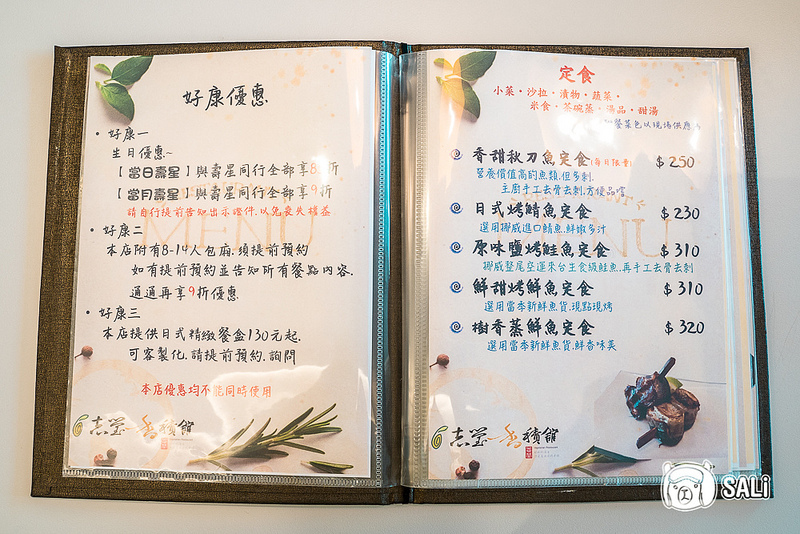 好康優惠
• 好康一
生日優惠~
【當日壽星】與壽星同行全部享8折
【當月壽星】與壽星同行全部享9折
請自行提前告知出示證件.以免喪失權益
• 好康二
本店附有8-14人包廂.須提前預約
如有提前預約並告知所有餐點內容.
通通再享9折優惠
• 好康三
本店提供日式精緻餐盒130元起.
可客製化.請提前預約.詢問
本店優惠均不能同時使用
志瑩一香積館
定食
小菜・沙拉・漬物・蔬菜・
米食・茶碗蒸・湯品・甜湯
餐菜色以現場供應
香甜秋刀魚定食(每日限量) $250
營養價值高的魚類.但多刺.
主廚手工去骨去刺.方便品嚐
日式烤鯖魚定食 $230
選用挪威進口鯖魚.鮮嫩多汁
原味鹽烤鮭魚定食 $310
挪威整尾空運來台生食級鮭魚.再手工去骨去刺
鮮甜烤鮮魚定食 $310
選用當季新鮮魚貨.現點現烤
樹香蒸鮮魚定食 $320
選用當季新鮮魚貨.鮮香味美
志瑩一香積館
SALi